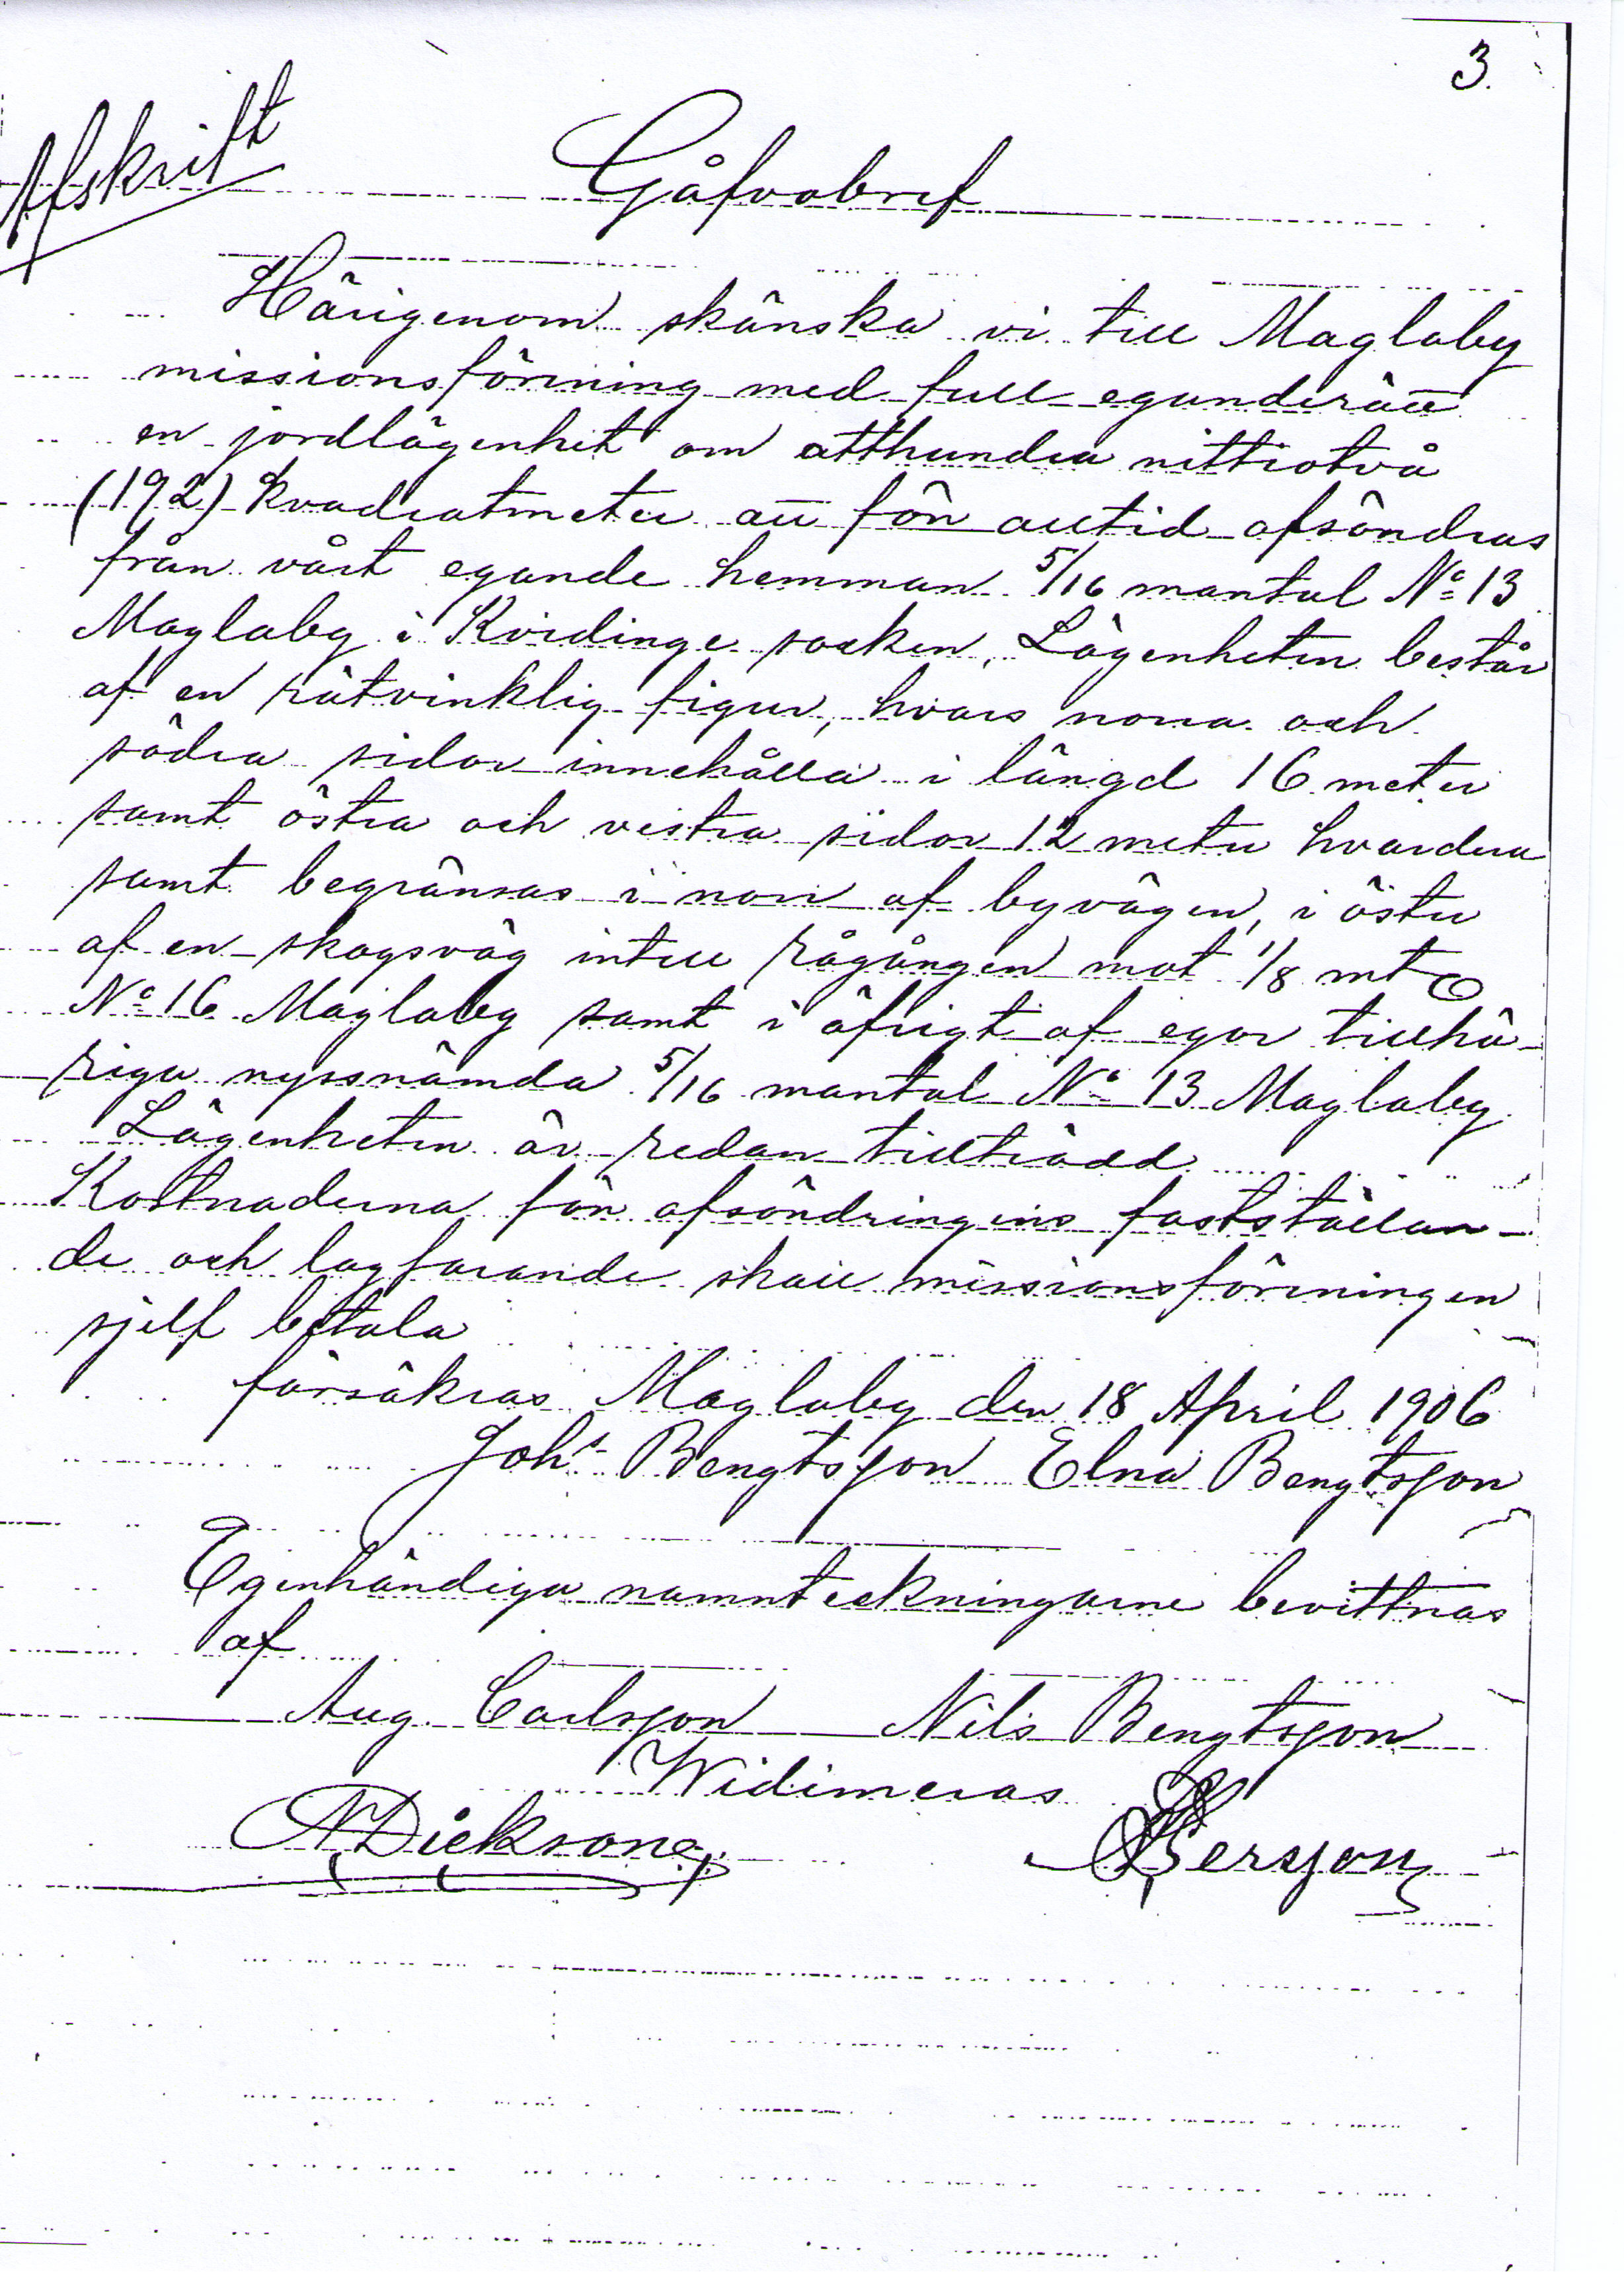 3.
Afskrift
Gåfvobref
Härigenom skänska vi till Maglaby
missionsförening med full eganderätt
en jordlägenhet om etthundra nittiotvå
(192) kvadratmeter att för alltid afsöndras
från vårt egande hemman 5/16 mantal No 13
Maglaby i Kvidinge socken, Lägenheten består
af en rätvinklig figur, hvars norra och
södra sidor innehålla i längd 16 meter
samt östra och vestra sidor 12 meter hvardera
samt begränsas i norr af byvägen, i öster
af en skogsväg intill rågången mot 1/8 mtl
No 16 Maglaby samt i öfrigt af egor tillhö-
riga nyssnämda 5/16 mantal No 13 Maglaby.
Lägenheten är redan tillträdd.
Kostnaderna för afsöndringens fastställan-
de och lagfarande skall missionsföreningen
sjelf betala
försäkras Maglaby den 18 April 1906
Johs Bengtsson Elna Bengtsson
Egenhändiga namnteckningarne bevittnas
af
Aug. Carlsson Nils Bengtsson
Widimeras
N Dickson Persson